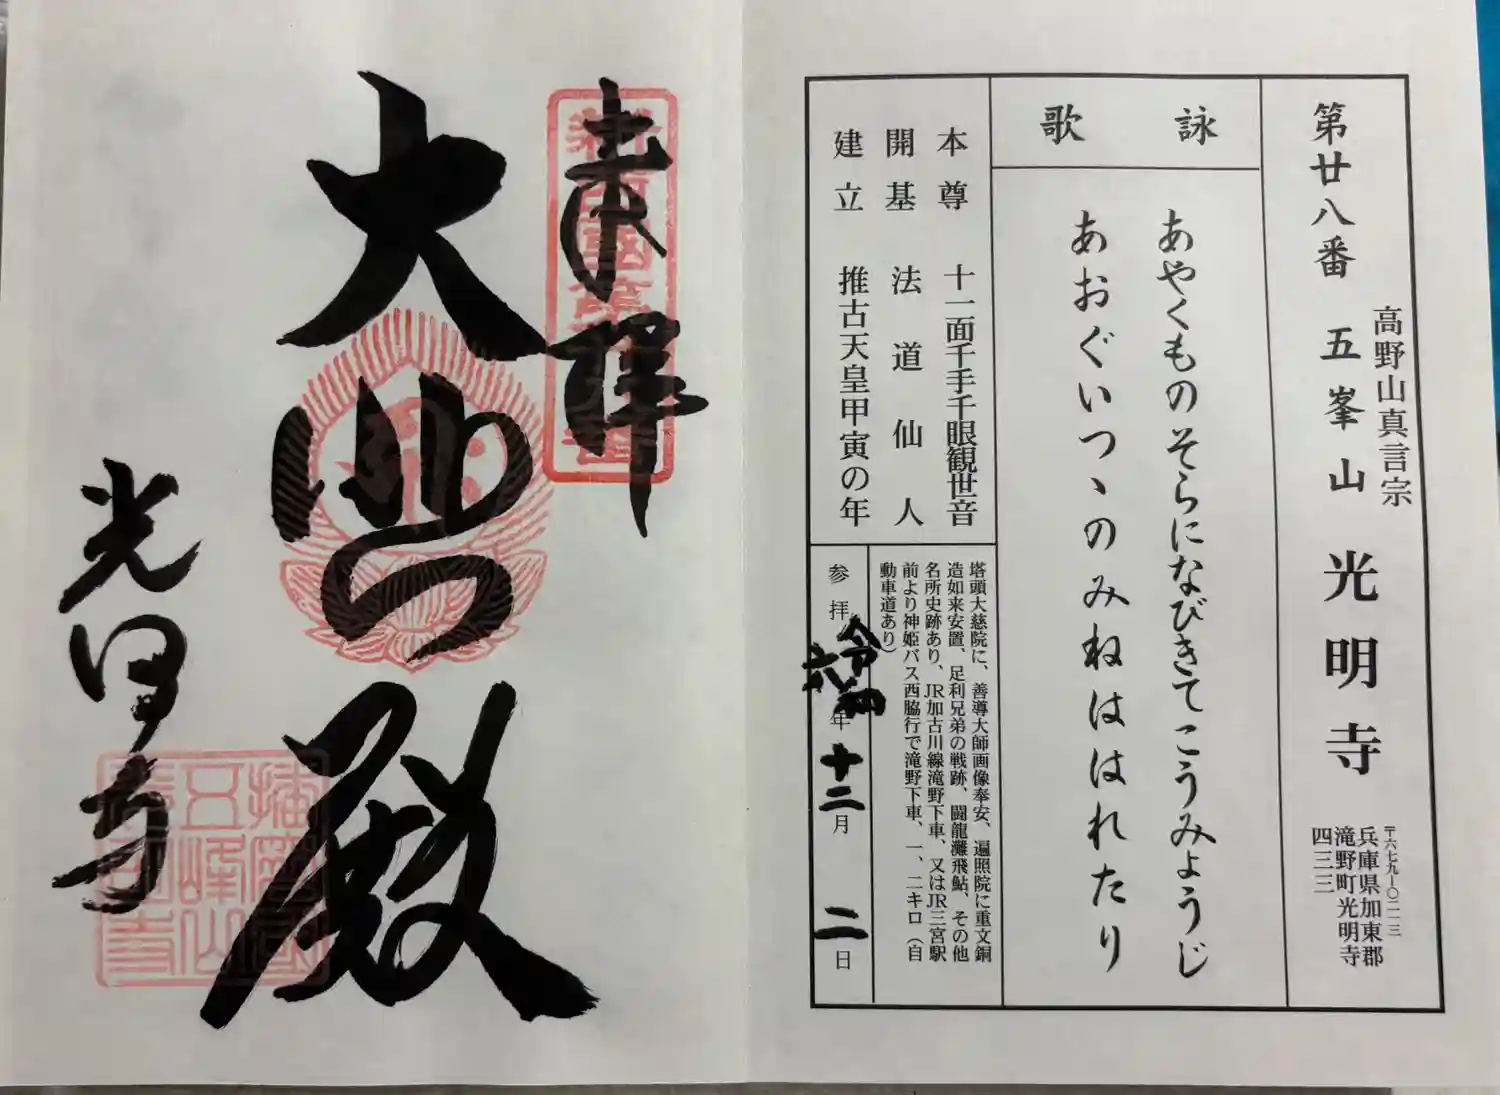 第廿八番
高野山真言宗
五峯山
光明寺
〒六七九ー〇二一三
兵庫県加東郡
滝野町光明寺
四三三
詠歌
あやくものそらになびきてこうみょうじ
あおぐいつヽのみねははれたり
本尊 十一面千手千眼観世音
開基 法道仙人
建立 推古天皇甲寅の年
塔頭大慈院に、善導大師画像奉安、遍照院に重文銅
造如来安置、足利兄弟の戦跡、闘龍灘飛鮎、その他
名所史跡あり、JR加古川線滝野下車、又はJR三宮駅
前より神姫バス西脇行で滝野下車、一、二キロ（自
動車道あり）
参拝 令和六年十二月二日
奉拝
大悲殿
光明寺